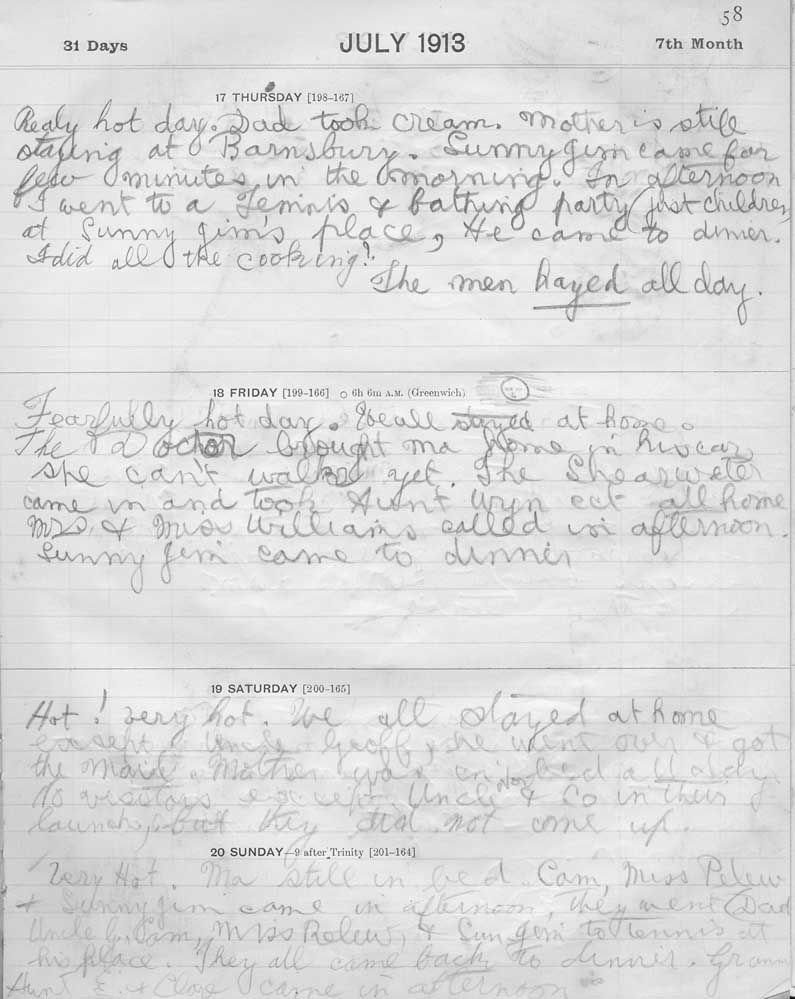 58
31 Days JULY 1913 7th Month
17 THURSDAY [198–167]
Realy hot day. Dad took cream. Mother is still
staying at Barnsbury. Sunny Jim came for
few minutes in the morning. In afternoon
I went to a Tennis & bathing party (just children
at Sunny Jim's place, He came to dinner.
I did all the cooking!
The men hayed all day.
18 FRIDAY [199–166] ○ 6h 6m A.M. (Greenwich)
Fearfully hot day. We all stayed at home.
The doctor brought ma home in his car
she can't walk yet. The Shearweter
came in and took Aunt Wyn ect all home
Mrs. & Miss Williams called in afternoon.
Sunny Jim came to dinner
19 SATURDAY [200–165]
Hot! very hot. We all stayed at home
except Uncle Geoff, he went over & got
the mail. Mother was in bed all day
No visitors except Uncle & Co in their
launch, but they did not come up.
20 SUNDAY—9 after Trinity [201–164]
Very Hot. Ma still in bed. Cam, Miss Pelew
& Sunny Jim came in afternoon, they went (Dad
Uncle G. Cam, Miss Pelew, & Sun Jim to tennis at
his place. They all came back to dinner. Granny
Aunt E. & Clove came in afternoon